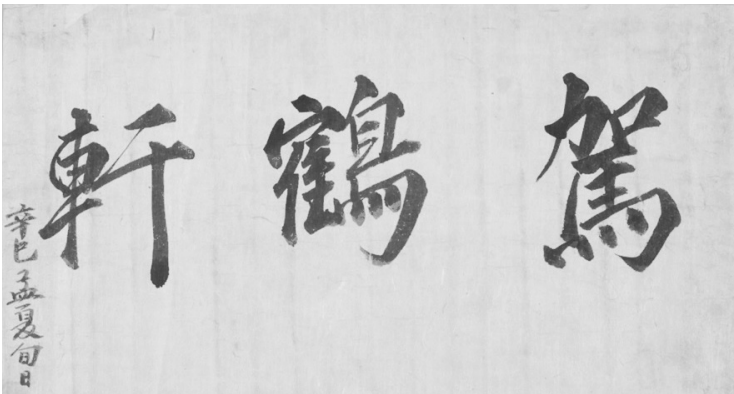 駕鶴軒
辛巳孟夏旬日